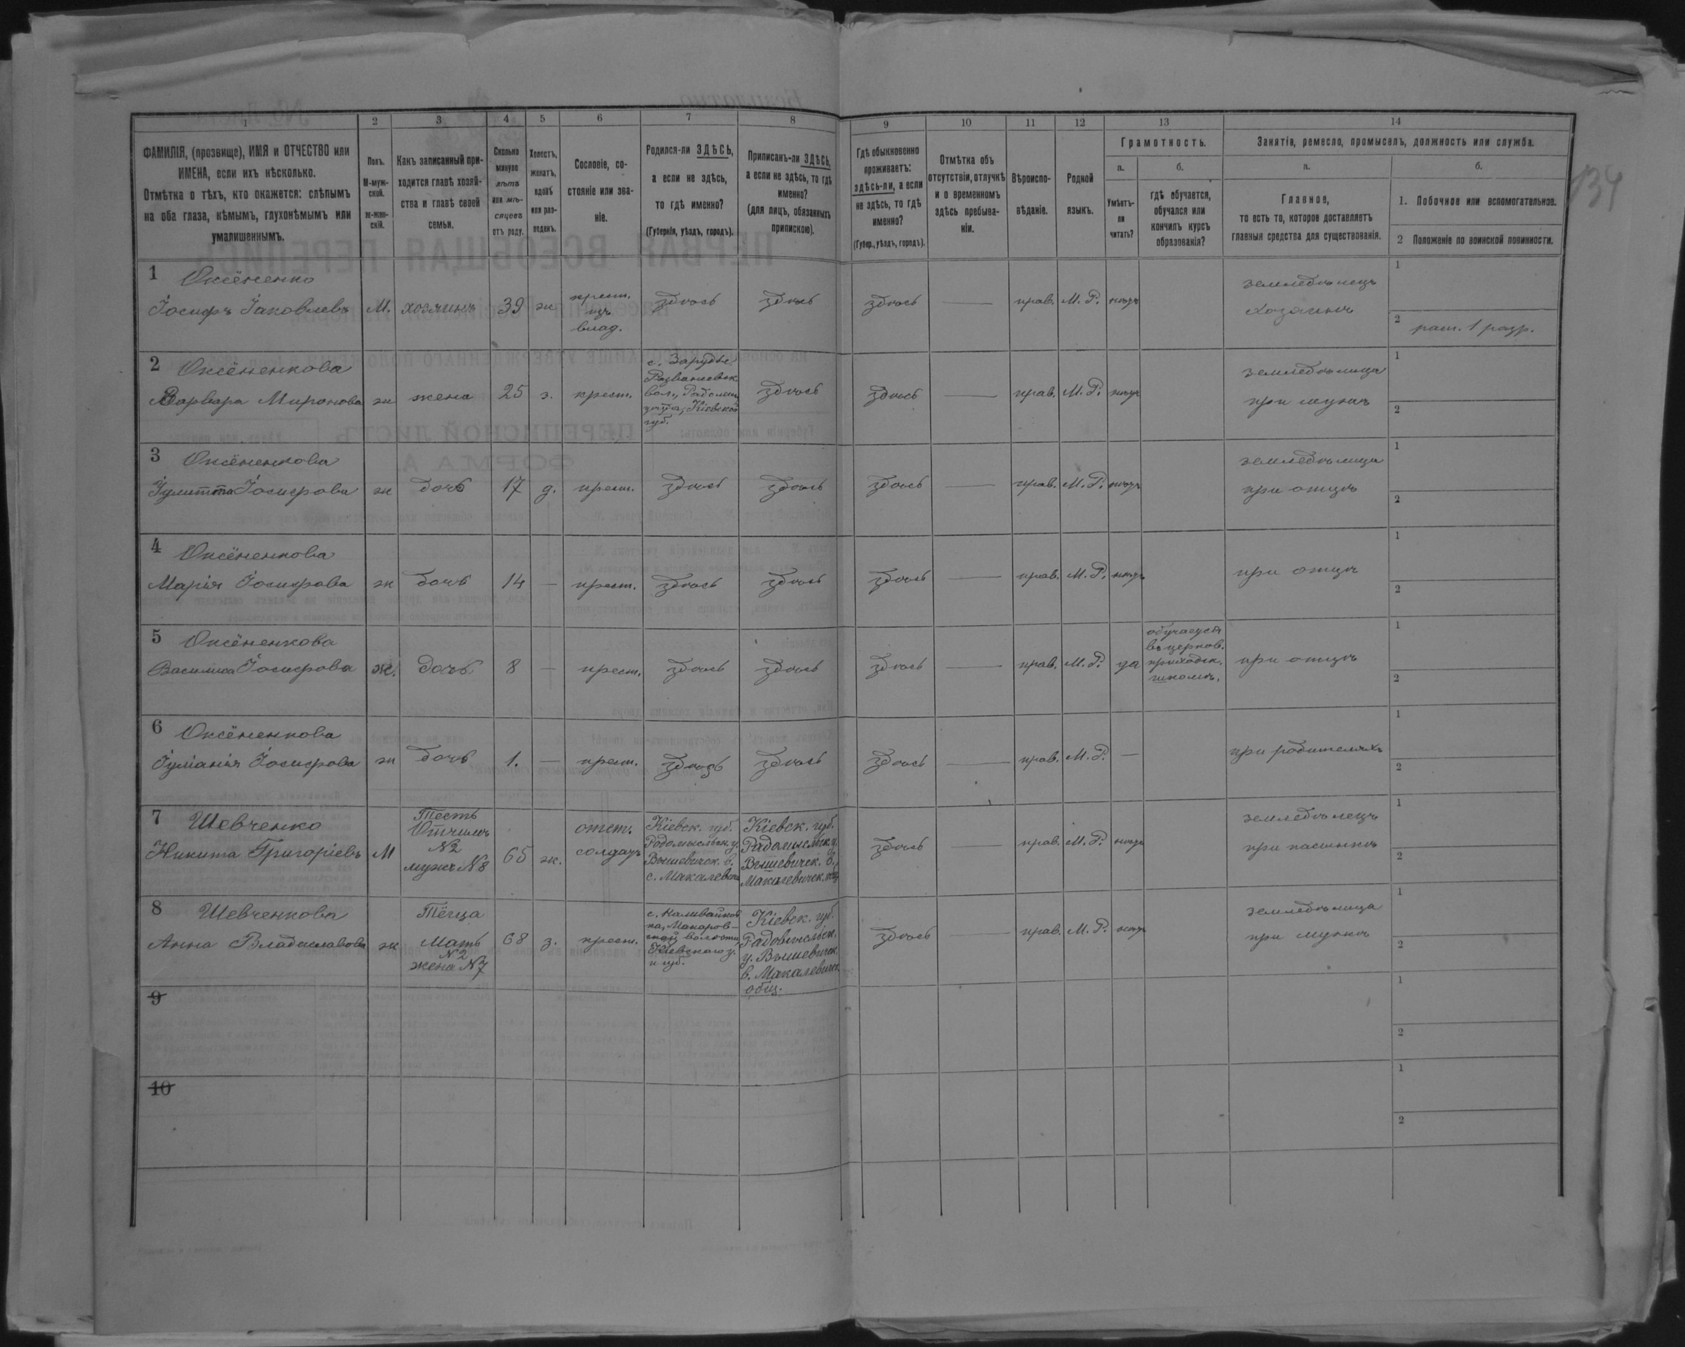 134
1 2 3 4 5 6 7 8 9 10 11 12 13 14
ФАМИЛІЯ, (прозвище), ИМЯ и ОТЧЕСТВО или
ИМЕНА, если ихъ нѣсколько.
Отмѣтка о тѣхъ, кто окажется: слѣпымъ
на оба глаза, нѣмымъ, глухонѣмымъ или
умалишеннымъ.
Полъ.
М-муж-
ской.
ж-жен-
скій.
Какъ записанный при-
ходится главѣ хозяй-
ства и главѣ своей
семьи.
Сколько
минуло
лѣтъ
или мѣ-
сяцевъ
отъ роду.
Холостъ,
женатъ,
вдовъ
или раз-
веденъ.
Сословіе, со-
стояніе или зва-
ніе.
Родился-ли ЗДѢСЬ,
а если не здѣсь,
то гдѣ именно?
(Губернія, уѣздъ, городъ).
Приписанъ-ли ЗДѢСЬ,
а если не здѣсь, то гдѣ
именно?
(для лицъ, обязанныхъ
припискою).
Гдѣ обыкновенно
проживаетъ:
здѣсь-ли, а если
не здѣсь, то гдѣ
именно?
(Губер., уѣздъ, городъ).
Отмѣтка объ
отсутствіи, отлучкѣ
и о временномъ
здѣсь пребыва-
ніи.
Вѣроиспо-
вѣданіе.
Родной
языкъ.
Грамотность.
а. б.
Умѣетъ-
ли
читать?
гдѣ обучается,
обучался или
кончилъ курсъ
образованія?
Занятіе, ремесло, промыселъ, должность или служба.
а. б.
Главное,
то есть то, которое доставляетъ
главныя средства для существованія.
1. Побочное или вспомогательное.
2 Положеніе по воинской повинности.
1 Оксёненко
Іосифъ Іаковлевъ М. хозяинъ 39 ж крест.
изъ
влад. здѣсь здѣсь здѣсь — прав. М. Р. нѣтъ земледѣлецъ
хозяинъ
1
2 рат. 1 разр.
2 Оксёненкова
Варвара Миронова ж жена 25 з. крест. с. Зарудье
вол., Радомыс.
уѣзда, Кіевской
губ. здѣсь здѣсь прав. М. Р. нѣтъ земледѣлица
при мужѣ
1
2
3 Оксёненкова
Іулитта Іосифова ж дочь 17 д. крест. здѣсь здѣсь здѣсь — прав. М. Р. нѣтъ земледѣлица
при отцѣ
1
2
4 Оксёненкова
Марія Іосифова ж дочь 14 — крест. здѣсь здѣсь здѣсь — прав. М. Р. нѣтъ при отцѣ
1
2
5 Оксёненкова
Василиса Іосифова ж. дочь 8 — крест. здѣсь здѣсь здѣсь — прав. М. Р. да обучается
въ церков.
приходск.
школѣ. при отцѣ
1
2
6 Оксёненкова
Іуліанія Іосифова ж дочь 1. — крест. здѣсь здѣсь здѣсь — прав. М. Р. — при родителяхъ
1
2
7 Шевченко
Никита Григоріевъ М Тесть
Отчимъ
№2
мужъ №8 65 ж. отст.
солдатъ Кіевск. губ.
Радомысльск. у.
Вышевичск. в.
с. Макалевичи Кіевск. губ.
Радомысльск. у.
Вышевичск. в.
Макалевичск. общ. здѣсь — прав. М. Р. нѣтъ земледѣлецъ
при пасынкѣ
1
2
8 Шевченкова
Анна Владиславова ж Тёща
Мать
№2
жена №7 68 з. крест. с.
Макаров-
ской волости
Кіевского у.
и губ. Кіевск. губ.
Радомысльск.
у. Вышевичск.
в. Макалевичск.
общ. здѣсь — прав. М. Р. нѣтъ земледѣлица
при мужѣ
1
2
9
1
2
10
1
2